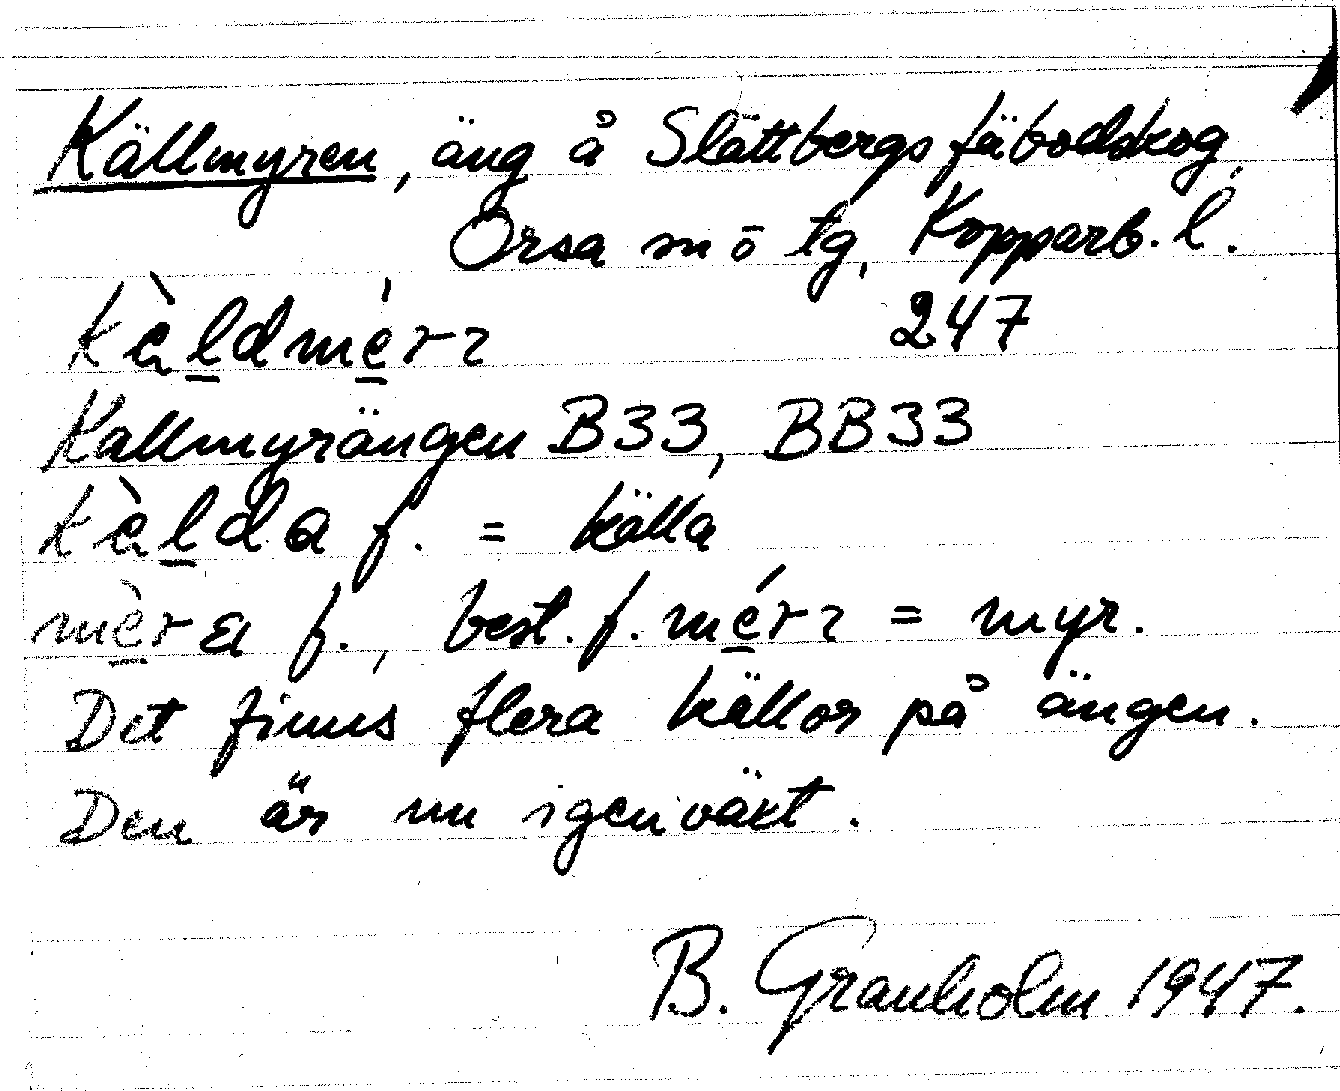 Källmyren, äng å Slättbergs fäbodskog,
Orsa sn ö tg, Kopparb. l.
kè̠l̠dmé̠rr 247
Kallmyrängen B33, BB33
kèl̠da f. = källa
mè̠ra f., best. f. mé̠rr = myr.
Det finns flera källor på ängen.
Den är nu igenväxt.
B. Granholm 1947.